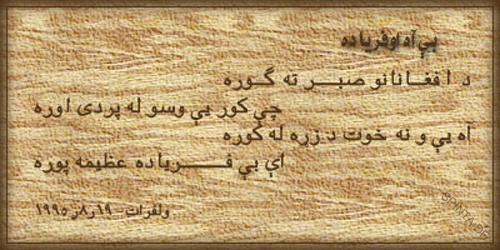 بې آه اوفرياده
د افغانانو صبر ته گوره
چې کور يې وسو له پردی اوره
آه يې و نه خوت د زړه له کوره
اې بې فرياده عظيمه پوره
ولفرات - ١٩ر٨ر١٩٩٥